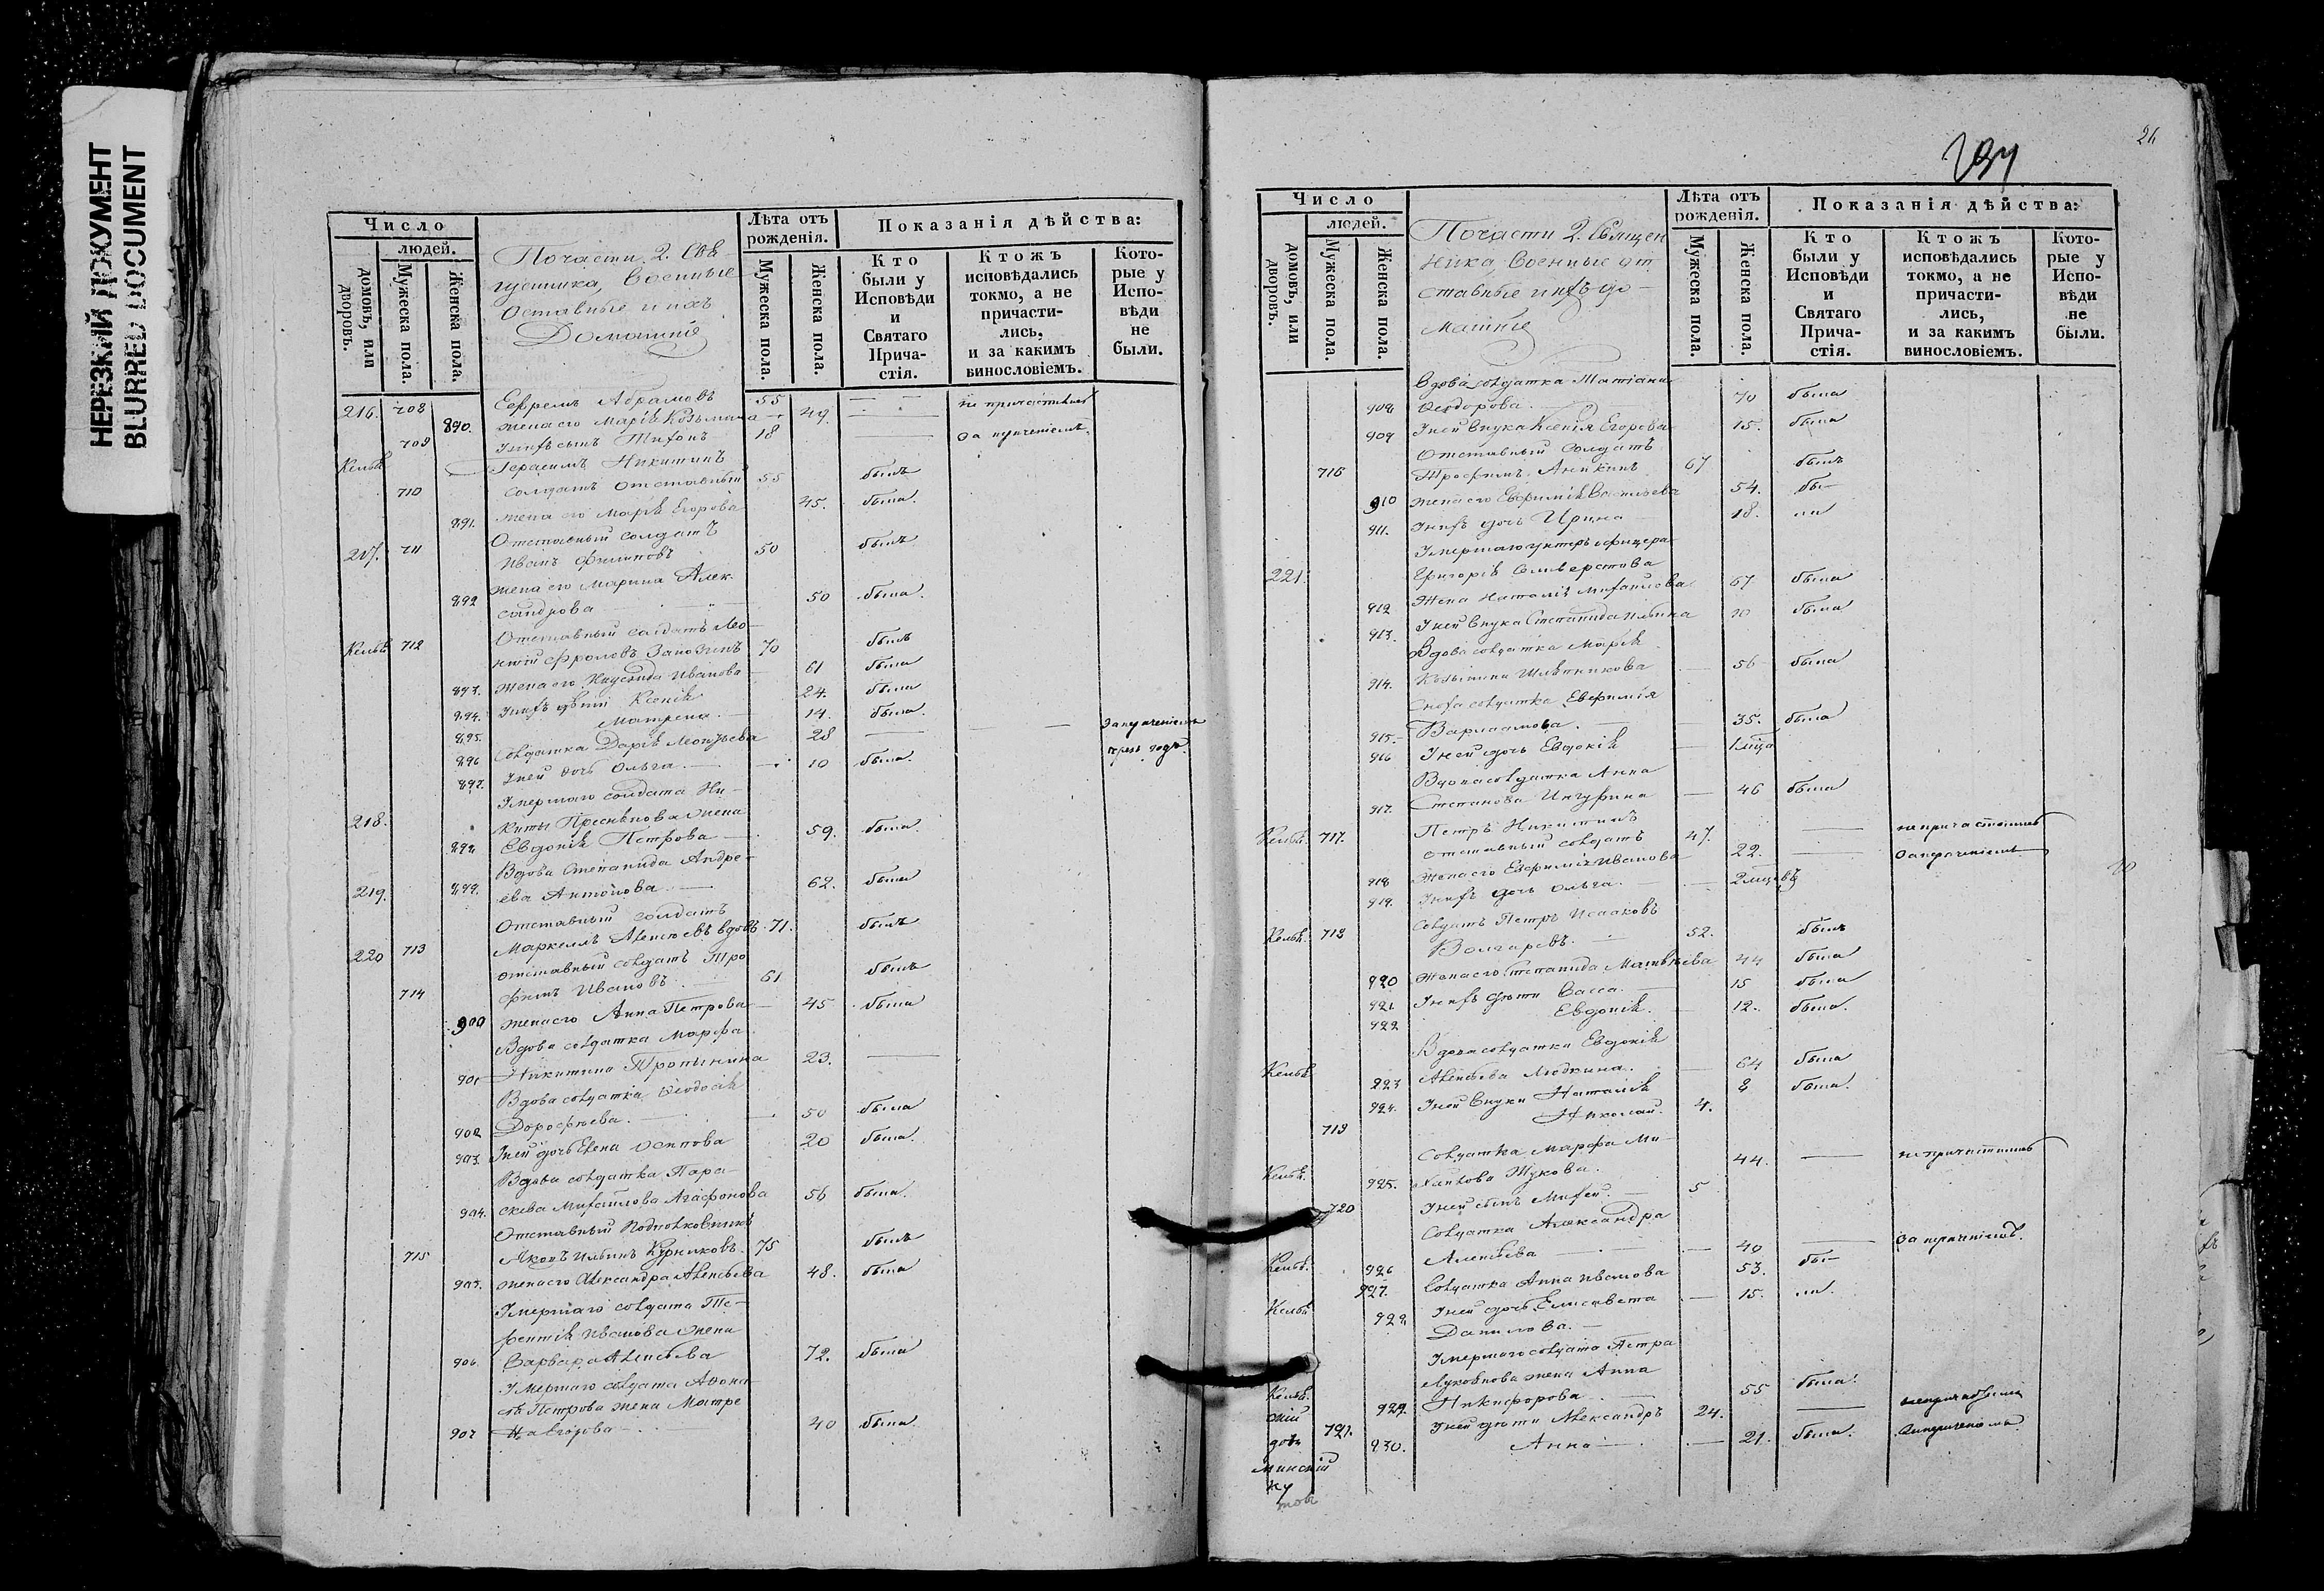 НЕРЕЗКИЙ ДОКУМЕНТ
BLURRED DOCUMENT
Число
людей.
домовъ, или дворовъ.
Мужеска пола.
Женска пола.
По части 2. Свя-
щенника, Военные
оставные и ихъ
Домашніе
Лѣта отъ рожденія.
Мужеска пола.
Женска пола.
Показанія дѣйства:
Кто были у Исповѣди и Святаго Прича-стія.
Ктожъ исповѣдались токмо, а не причасти-лись, и за какимъ винословіемъ.
Кото-рые у Испо-вѣди не были.
216. 708 Ефремъ Абрамовъ 55 не причастился
890. жена его Марія Козьмина 49.
709 У нихъ сынъ Тихонъ 18
Герасимъ Никитинъ
710 солдатъ отставный 55 былъ
891. жена его Марія Егорова 45. была.
Отставный солдатъ
217. 711 Иванъ Филиповъ 50 былъ
жена его Марина Алек-
892 сандрова 50 была.
Отставный солдатъ Лео-
712 нтій Фроловъ 70 былъ
893. жена его Надежда Иванова 61 была
894. У нихъ дѣти Ксенія 24. была
895. Матрена. 14. была.
896 Солдатка Дарія Леонтьева 28
897. У ней дочь Ольга. 10 была.
Умершаго солдата Ни-
218. киты Преснякова жена
898 Евдокія Петрова 59. была.
Вдова Степанида Андре-
219. 899. ева Антонова. 62. была
Отставный солдатъ
220 713 Маркеллъ Алексѣевъ вдовъ 71. былъ
отставный солдатъ Тро
714 фимъ Ивановъ. 61 былъ
900 жена его Анна Петрова 45 была
Вдова солдатка Марфа
901 Никитина 23.
Вдова солдатка Ѳеодосія
902 Дорофѣева. 50 была
903. У ней дочь Елена Осипова 20 была.
Вдова солдатка Пара-
904. скева Михайлова Агафонова 56 была.
Отставный
715 Яковъ Ильинъ 75 былъ
жена его Александра Алексѣева 48. была
Умершаго солдата Те-
рентія Иванова жена
906. Варвара Алексѣева 72. была
Умершаго солдата Аѳона-
сія Петрова жена Матре
907 на Егорова 40 была.
26
Число
людей.
домовъ, или дворовъ.
Мужеска пола.
Женска пола.
По части 2. Священ
ника Военные от
ставные и ихъ до-
машніе
Лѣта отъ рожденія.
Мужеска пола.
Женска пола.
Показанія дѣйства:
Кто были у Исповѣди и Святаго Прича-стія.
Ктожъ исповѣдались токмо, а не причасти-лись, и за какимъ винословіемъ.
Кото-рые у Испо-вѣди не были.
Вдова солдатка Татіана
908 Ѳеодорова. 70 была
909 У ней внука Ксенія Егорова 15. была
Отставный солдатъ
716 Трофимъ Аникинъ 67 былъ
910 жена его Евфимія Васильева 54. бы-
911. У нихъ дочь Ирина 18. ли
Умершаго унтеръ офицера
221. Григорія Селиверстова
912 Жена Наталія Михайлова 67 была
913. У ней внука Степанида Ильина 10 была
Вдова солдатка Марія
914. Козьмина 56 была
Сноха солдатка Евфимія
915. Варламова. 35. была
916 У ней дочь Евдокія
Вдова солдатка Анна
917. Степанова 46 была
Петръ Никитинъ
717. отставный солдатъ 47. не причастился
918 Жена его Евфимія Иванова 22.
919. У нихъ дочь Ольга.
Солдатъ Петръ Исааковъ
718 Болгаревъ. 52. былъ
920 Жена его Степанида Матвѣева 44 была
921. У нихъ дѣти Васса. 15 была
922 Евдокія. 12. была.
Вдова солдатка Евдокія
923 Алексѣева 64 была
924. У ней внуки Наталія 8 была.
719 Николай. 4.
Солдатка Марфа Ми-
925. хаилова Жукова. 44. не причастилась
720 У ней сынъ 5
Солдатка Александра
926 Алексѣева 40
927. Солдатка Анна Иванова 53. бы-
928 У ней дочь Елисавета 15. ли.
Данилова.
Умершаго солдата Петра
жена Анна
929. Никифорова. 55 была.
721. У ней дѣти Александръ 24.
930. Анна 21. была.